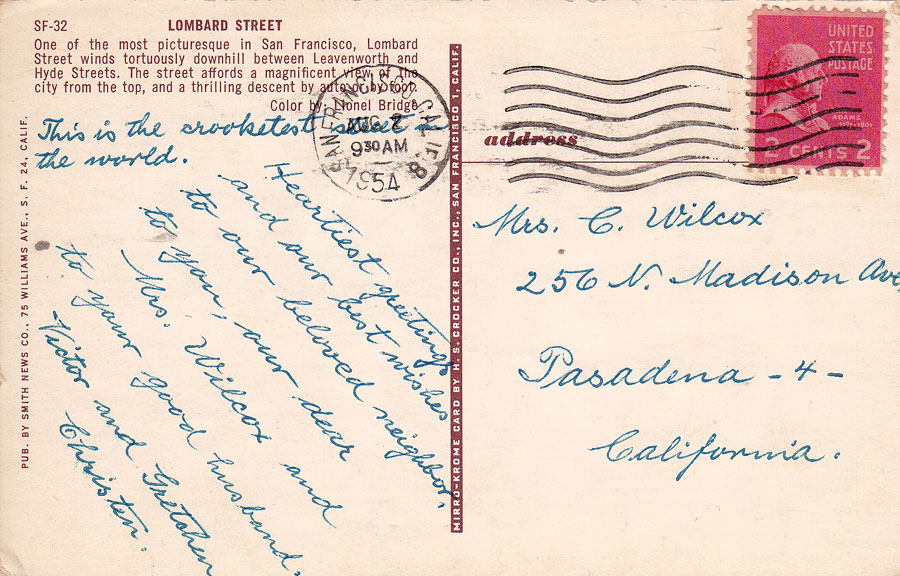 SF-32 LOMBARD STREET
One of the most picturesque in San Francisco, Lombard
Street winds tortuously downhill between Leavenworth and
Hyde Streets. The street affords a magnificent view of the
city from the top, and a thrilling descent by auto or by foot.
Color by Lionel Bridge
This is the crooketest street in
the world.
Heartiest greetings
and our best wishes
to our beloved neighbor,
to you, our dear
Mrs. Wilcox and
to your good husband.
Victor and Gretchen
Christen.
PUB. BY SMITH NEWS CO., 75 WILLIAMS AVE., S. F. 24, CALIF.
MIRRO-KROME CARD BY H. S. CROCKER CO., INC., SAN FRANCISCO 1, CALIF.
SAN FRANCISCO, CALIF. 8
AUG 2
9 30 AM
1954
UNITED
STATES
POSTAGE
ADAMS
2 CENTS 2
address
Mrs. C. Wilcox
256 N. Madison Ave,
Pasadena - 4 -
California.